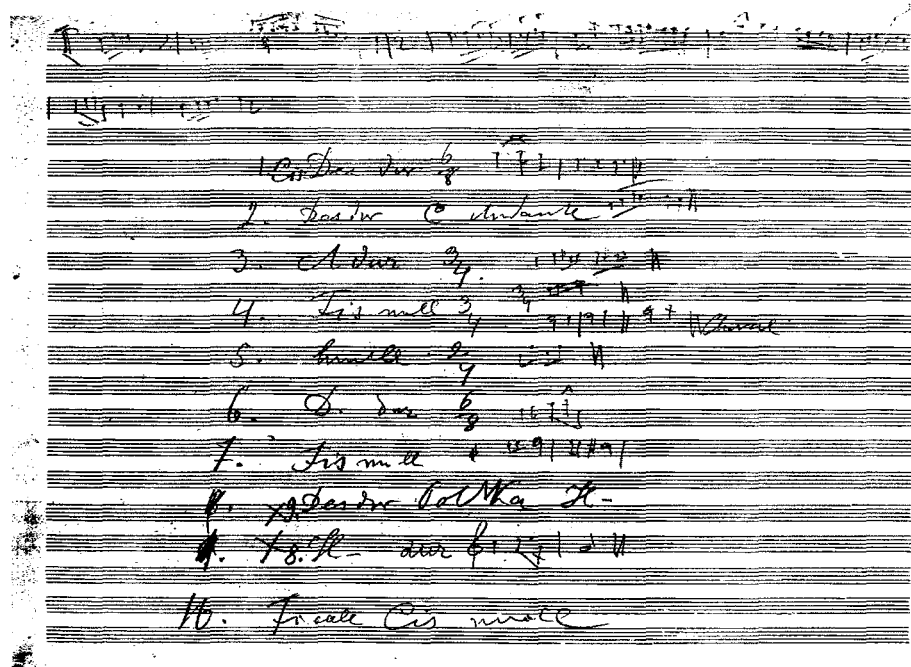 1. Cis Des dur 6/8
2. Des dur C Andante
3. A dur 3/4.
4. Fis moll 3/4 3/4
5. moll 2/4
6. D. dur 6/8
7. Fis moll
x9. Des dur Polka H-
x8. H- dur
10. Finale Cis moll